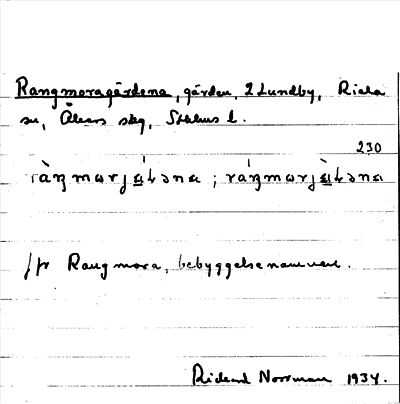 Rangmoragårdena, gården, 2 Lundby, Riala
sn, Åkers skg, Sthlms l.
230
ràŋmωrjá̱ɫəna ; ráŋmωrjà̱ɫəna
Jfr Rangmora, bebyggelsenamnen.
Rickard Norrman 1934.